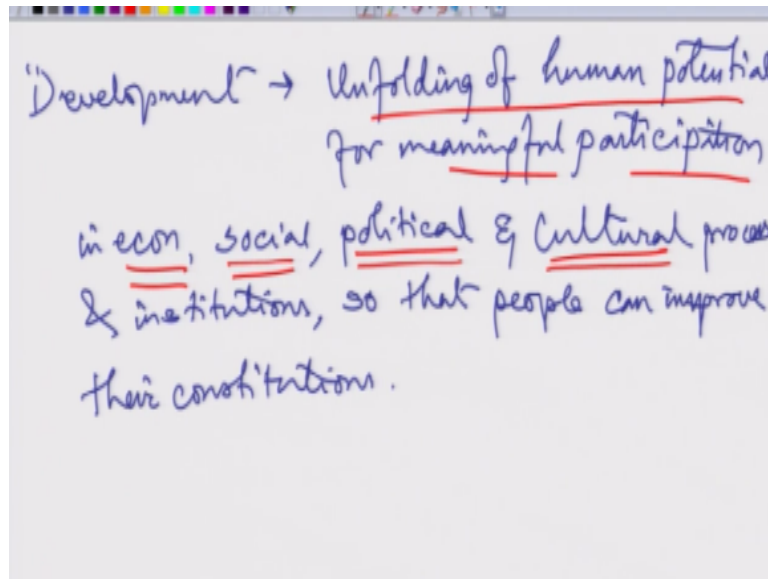 "Development" → Unfolding of human potential
for meaningful participation
in econ, social, political & Cultural proces
& institutions, so that people can improve
their constitutions.